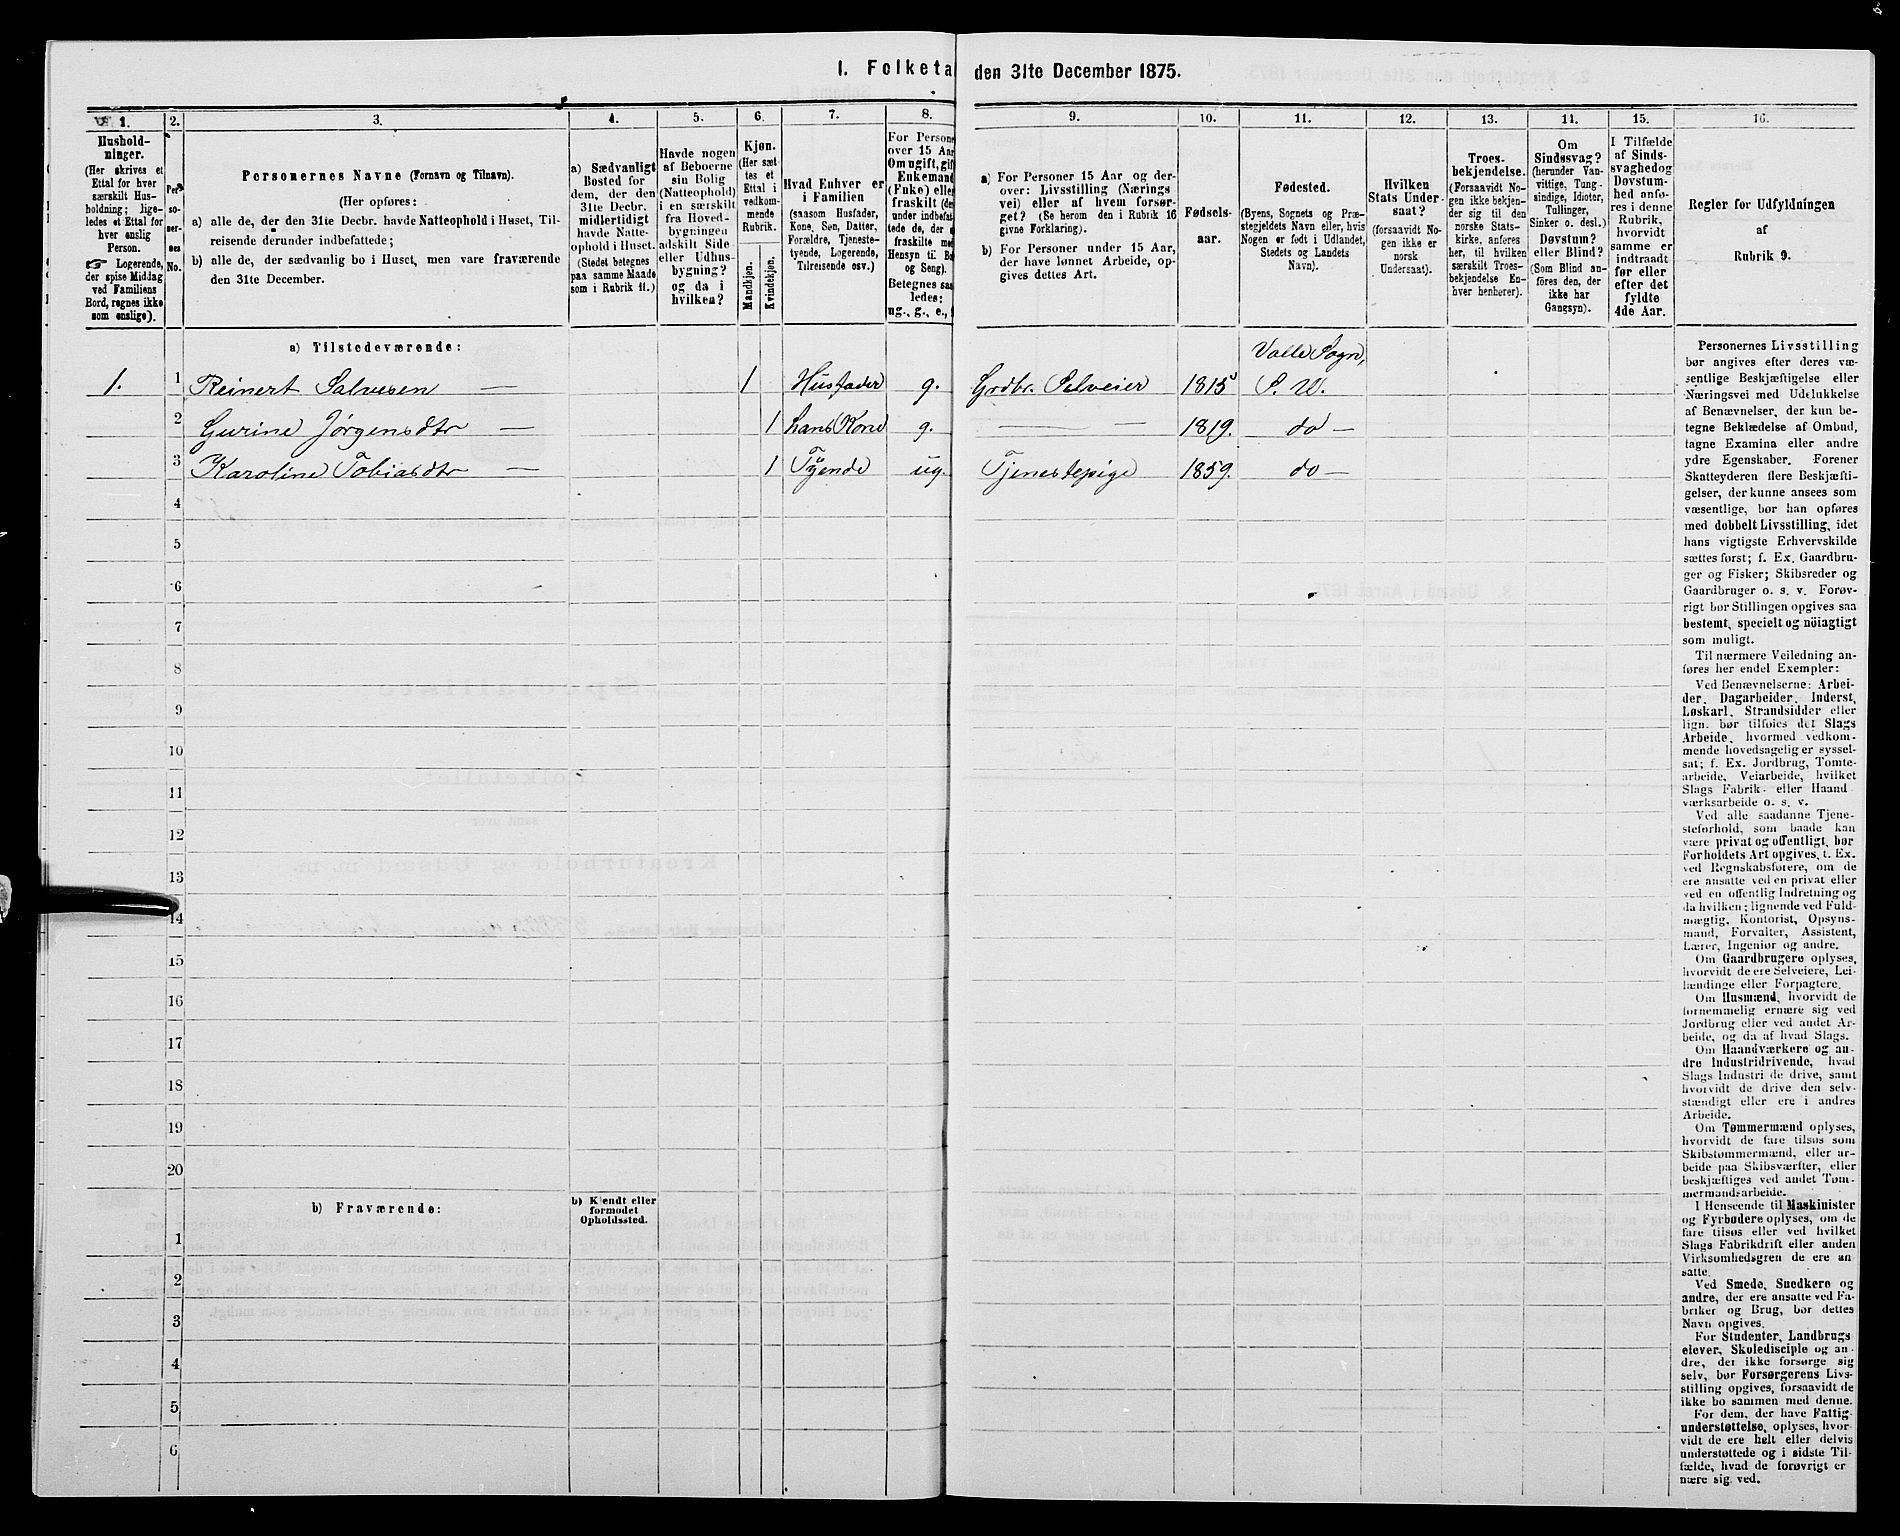 I. Folketa
den 31te December 1875.
1.
Hushold-
ninger.
(Her skrives et
Ettal for hver
særskilt Hus-
holdning; lige-
ledes et Ettal for
hver enslig
Person.
☞ Logerende,
der spise Middag
ved Familiens
Bord, regnes ikke
som enslige).
2.
Per-
so-
ner-
nes
No.
3.
Personernes Navne (Fornavn og Tilnavn).
(Her opføres:
a) alle de, der den 31te Decbr. havde Natteophold i Huset, Til-
reisende derunder indbefattede;
b) alle de, der sædvanlig bo i Huset, men vare fraværende
den 31te December.
4.
a) Sædvanligt
Bosted for
dem, der den
31te Decbr.
midlertidigt
havde Natte-
ophold i Huset.
(Stedet betegnes
paa samme Maade
som i Rubrik 11.)
5.
Havde nogen
af Beboerne
sin Bolig
(Natteophold)
i en særskilt
fra Hoved-
bygningen
adskilt Side-
eller Udhus-
bygning?
og da i
hvilken?
6.
Kjøn.
(Her sæt-
tes et
Ettal i
vedkom-
mende
Rubrik.
Mandkjøn.
Kvindekjøn.
7.
Hvad Enhver er
i Familien
(saasom Husfader,
Kone, Søn, Datter,
Forældre, Tjeneste-
tyende, Logerende,
Tilreisende osv.)
8.
For Persone
over 15 Aar
Om ugift, gif
Enkemand
(Enke) elle
fraskilt (de
under indbefat
tede de, der e
fraskilte me
Hensyn til Bo
og Seng).
Betegnes saa
ledes:
ug., g., e., f
9.
a) For Personer 15 Aar og der-
over: Livsstilling (Nærings
vei) eller af hvem forsør-
get? (Se herom den i Rubrik 16
givne Forklaring).
b) For Personer under 15 Aar,
der have lønnet Arbeide, op-
gives dettes Art.
10.
Fødsels-
aar.
11.
Fødested.
(Byens, Sognets og Præ-
stegjeldets Navn eller, hvis
Nogen er født i Udlandet,
Stedets og Landets
Navn).
12.
Hvilken
Stats Under-
saat?
(forsaavidt No-
gen ikke er
norsk
Undersaat).
13.
Troes-
bekjendelse.
(Forsaavidt No-
gen ikke bekjen-
der sig til den
norske Stats-
kirke, anføres
her, til hvilken
særskilt Troes-
bekjendelse En-
hver henhører).
14.
Om
Sindssvag?
(herunder Van-
vittige, Tung-
sindige, Idioter,
Tullinger,
Sinker o. desl.)
Døvstum?
eller Blind?
(Som Blind an-
föres den, der
ikke har
Gangsyn).
15.
I Tilfælde
af Sinds-
svaghed og
Døvstum-
hed anfø-
res i denne
Rubrik,
hvorvidt
samme er
indtraadt
før eller
efter det
fyldte
4de Aar.
16.
Regler for Udfyldningen
af
Rubrik 9.
a) Tilstedeværende:
Valle Sogn,
1. 1 Reinert Salvesen — 1 Husfader g. Grdbr. Selveier 1815 S. U.
2 Gurine Jørgensdtr — 1 hans Kone g. — — 1819. do —
3 Karoline Tobiasdtr — 1 Tyende ug. Tjenestepige 1859. do —
4
5
6
7
8
9
10
11
12
13
14
15
16
17
18
19
20
b) Fraværende:
b) Kjendt eller
formodet
Opholdssted.
1
2
3
4
5
6
Personernes Livsstilling
bør angives efter deres væ-
sentlige Beskjæftigelse eller
Næringsvei med Udelukkelse
af Benævnelser, der kun be-
tegne Beklædelse af Ombud,
tagne Examina eller andre
ydre Egenskaber. Forener
Skatteyderen flere Beskjæfti-
gelser, der kunne ansees som
væsentlige, bør han opføres
med dobbelt Livsstilling, idet
hans vigtigste Erhvervskilde
sættes først; f. Ex. Gaardbru-
ger og Fisker; Skibsreder og
Gaardbruger o. s. v. Forøv-
rigt bør Stillingen opgives saa
bestemt, specielt og nöiagtigt
som muligt.
Til nærmere Veiledning an-
føres her endel Exempler:
Ved Benævnelserne: Arbei-
der, Dagarbeider, Inderst,
Løskarl, Strandsidder eller
lign. bør tilføies det Slags
Arbeide, hvormed vedkom-
mende hovedsagelig er syssel-
sat; f. Ex. Jordbrug, Tomte-
arbeide, Veiarbeide, hvilket
Slags Fabrik- eller Haand
værksarbeide o. s. v.
Ved alle saadanne Tjene-
steforhold, som baade kan
være privat og offentligt, bør
Forholdets Art opgives, t. Ex.
ved Regnskabsførere, om de
ere ansatte ved en privat eller
ved en offentlig Indretning og
da hvilken; lignende ved Fuld-
mægtig, Kontorist, Opsyns-
mand, Forvalter, Assistent,
Lærer, Ingeniør og andre.
Om Gaardbrugere oplyses,
hvorvidt de ere Selveiere, Lei-
lændinge eller Forpagtere.
Om Husmænd, hvorvidt de
fornemmelig ernære sig ved
Jordbrug eller ved andet Ar-
beide, og da af hvad Slags.
Om Haandværkere og an-
dre Industridrivende, hvad
Slags Industri de drive, samt
hvorvidt de drive den selv-
stændigt eller ere i andres
Arbeide.
Om Tømmermænd oplyses,
hvorvidt de fare tilsøs som
Skibstømmermænd, eller ar-
beide paa Skibsværfter, eller
beskjæftiges ved andet Tøm-
mermandsarbeide.
I Henseende til Maskinister
og Fyrbødere oplyses, om de
fare tilsøs eller ved hvilket
Slags Fabrikdrift eller anden
Virksomhedsgren de ere an-
satte.
Ved Smede, Snedkere og
andre, der ere ansatte ved Fa-
briker og Brug, bør dettes
Navn opgives.
For Studenter, Landbrugs
elever, Skoledisciple og an-
dre, der ikke forsørge sig
selv, bør Forsørgerens Livs-
stilling opgives, forsaavidt de
ikke bo sammen med denne.
For dem, der have Fattig-
understøttelse, oplyses, hvor-
vidt de ere helt eller delvis
understøttede og i sidste Til-
fælde, hvad de forøvrigt er
nære sig ved.